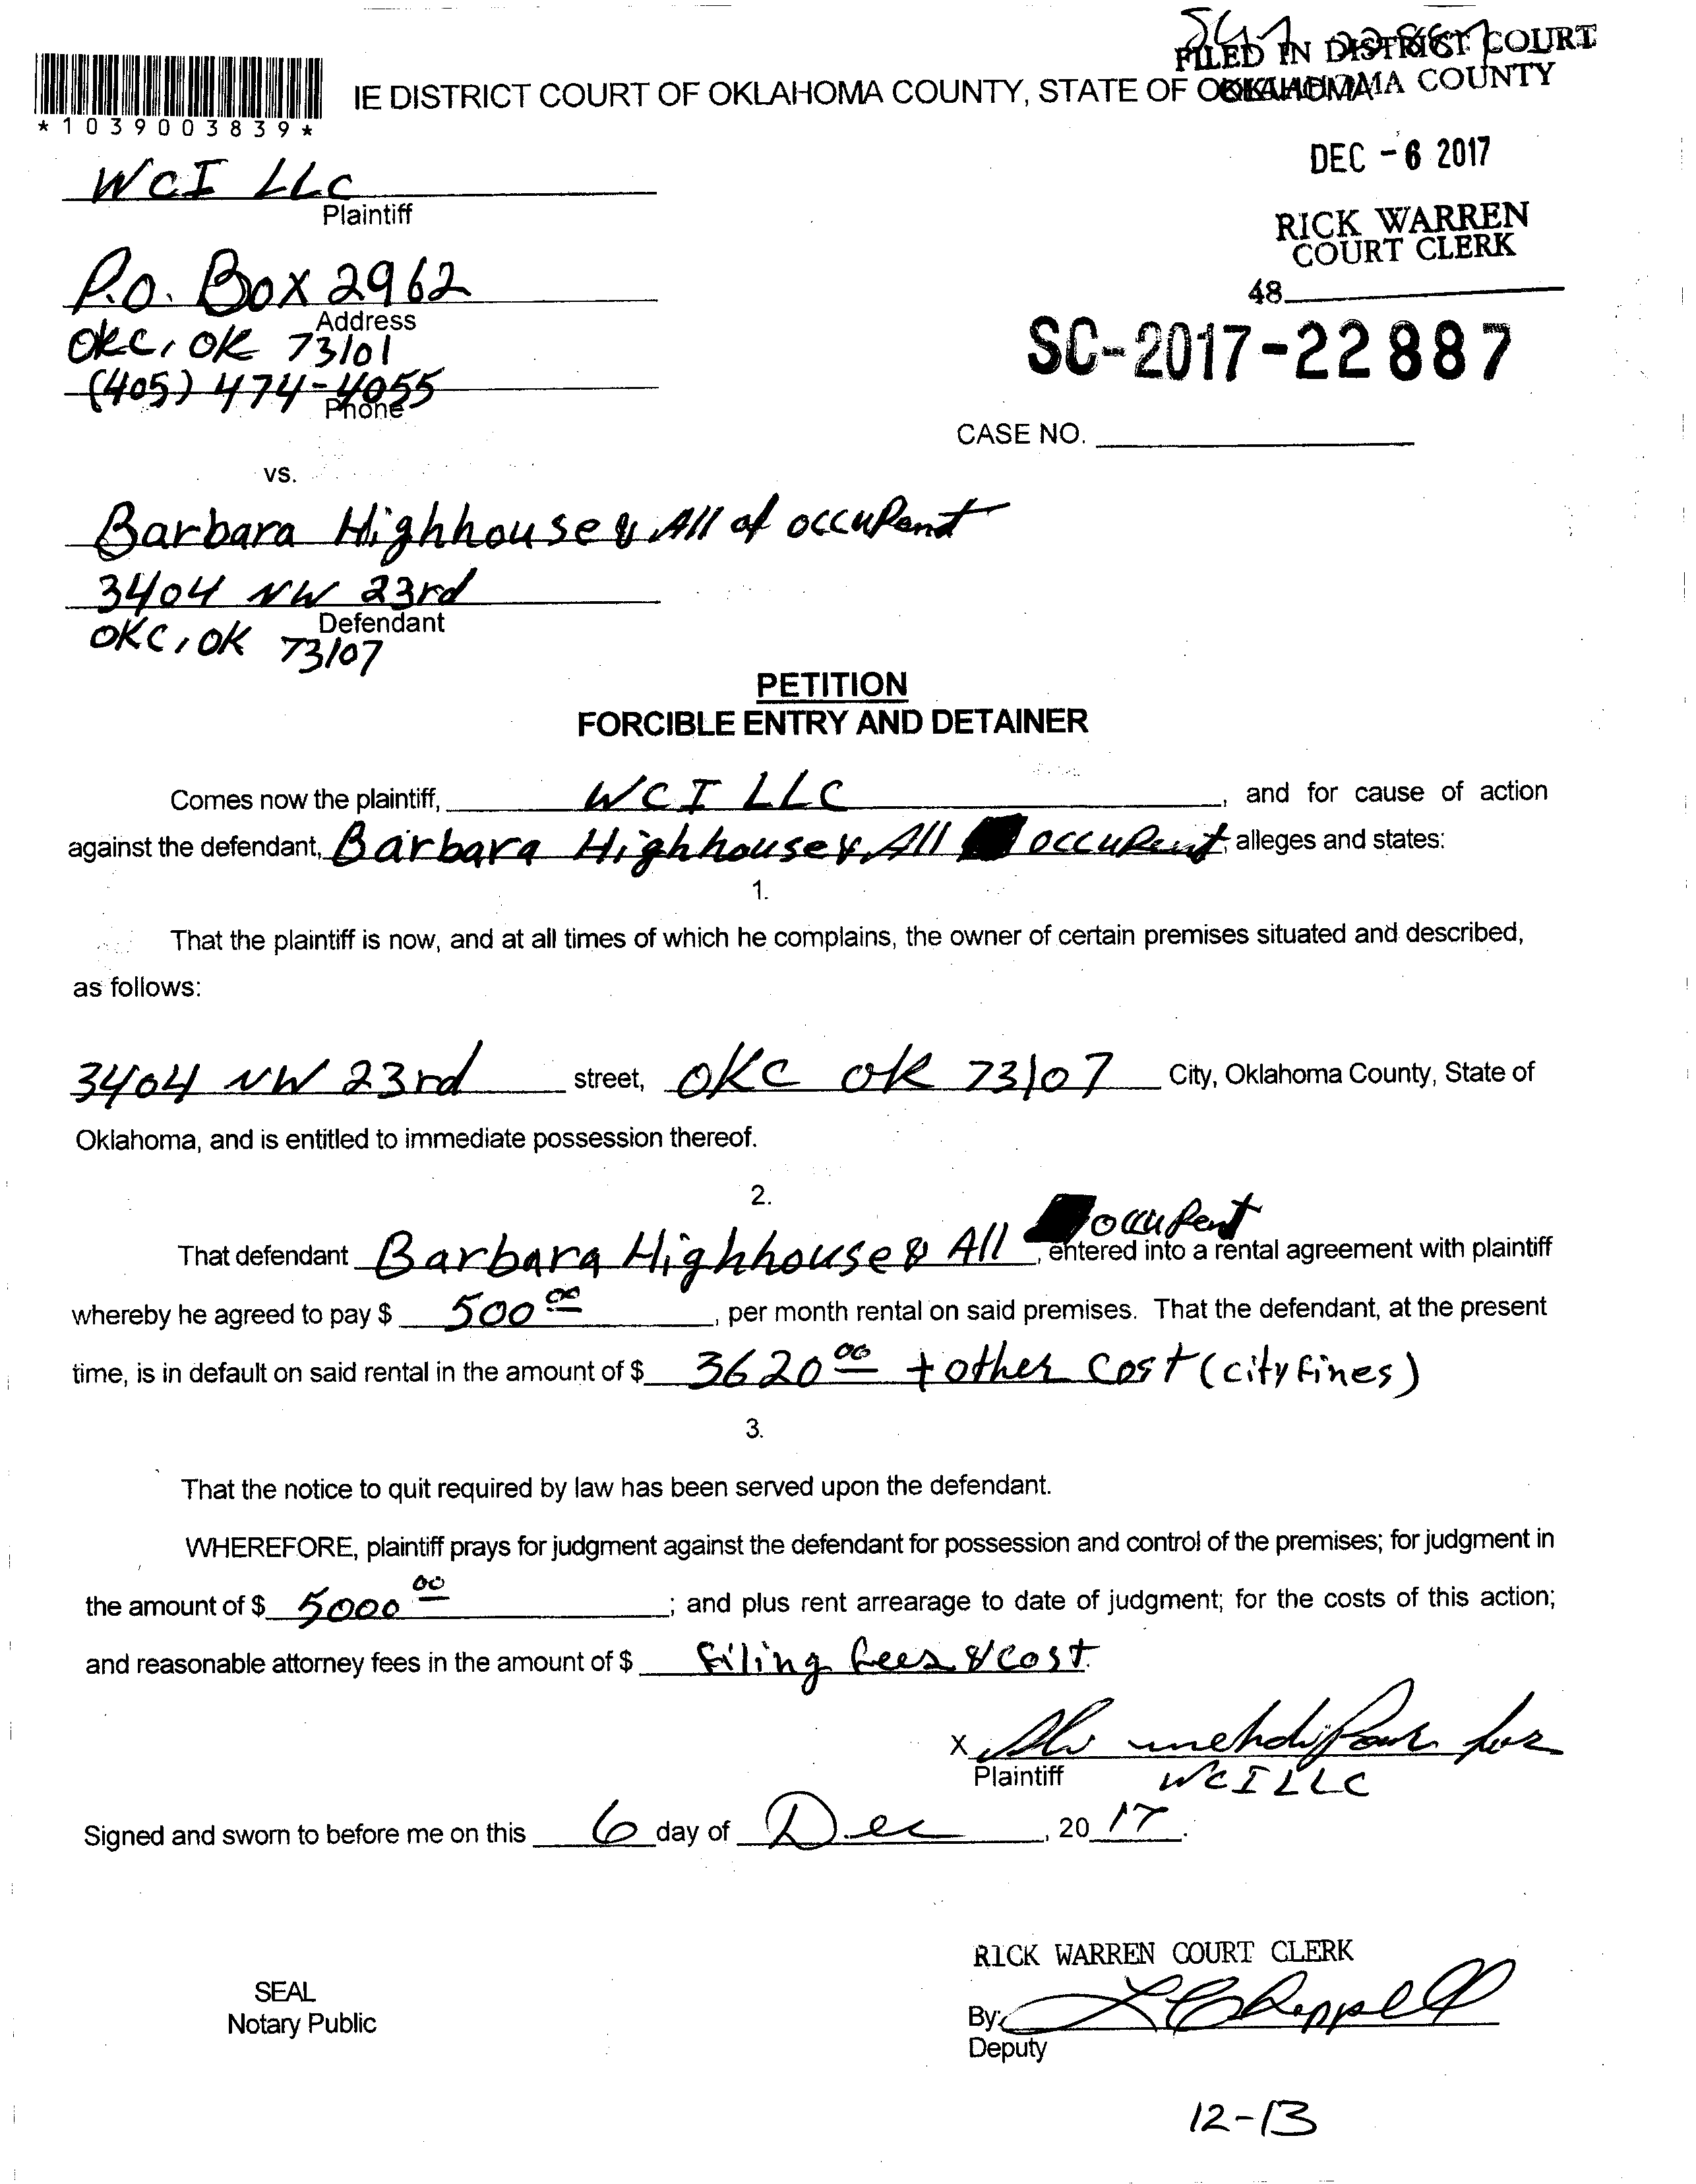 FILED IN DISTRICT COURT
IE DISTRICT COURT OF OKLAHOMA COUNTY, STATE OF OKLAHOMA
OKLAHOMA COUNTY
*1039003839*
DEC -6 2017
WCI LLC
Plaintiff
RICK WARREN
COURT CLERK
P.O. Box 2962
48
Address
OKC, OK 73101
SC-2017-22887
(405) 474-4055
Phone
CASE NO.
vs.
Barbara Highhouse & All of occupent
3404 NW 23rd
Defendant
OKC, OK 73107
PETITION
FORCIBLE ENTRY AND DETAINER
Comes now the plaintiff, WCI LLC, and for cause of action
against the defendant, Barbara Highhouse & All occupent, alleges and states:
1.
That the plaintiff is now, and at all times of which he complains, the owner of certain premises situated and described,
as follows:
3404 NW 23rd street, OKC OK 73107 City, Oklahoma County, State of
Oklahoma, and is entitled to immediate possession thereof.
2.
That defendant Barbara Highhouse & All occupent, entered into a rental agreement with plaintiff
whereby he agreed to pay $ 500 00, per month rental on said premises. That the defendant, at the present
time, is in default on said rental in the amount of $ 3620 00 + other cost (city fines)
3.
That the notice to quit required by law has been served upon the defendant.
WHEREFORE, plaintiff prays for judgment against the defendant for possession and control of the premises; for judgment in
the amount of $ 5000 00; and plus rent arrearage to date of judgment; for the costs of this action;
and reasonable attorney fees in the amount of $ filing fees & cost.
X mehdipour for
Plaintiff WCI LLC
Signed and sworn to before me on this 6 day of Dec, 20 17.
RICK WARREN COURT CLERK
SEAL
Notary Public
By: Chappell
Deputy
12-13